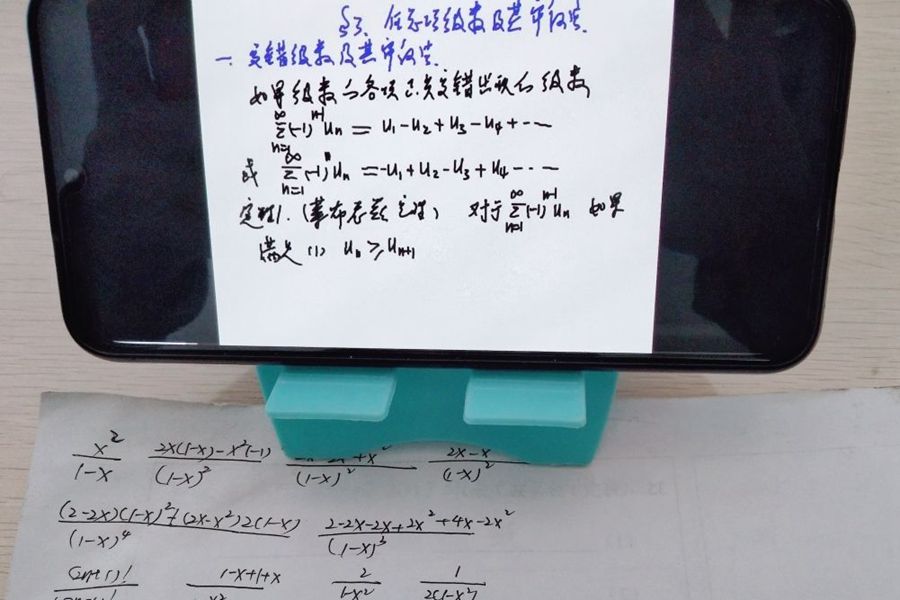 §3. 任意项级数及其审敛法.
一. 交错级数及其审敛法.
如果级数的各项正负交错出现的级数
∞∑n=1 (-1)^{n-1} u_n = u_1 - u_2 + u_3 - u_4 + ⋯
或 ∞∑n=1 (-1)^n u_n = -u_1 + u_2 - u_3 + u_4 - ⋯
定理1. (莱布尼兹定理) 对于 ∞∑n=1 (-1)^{n-1} u_n 如果
满足 (1) u_n ≥ u_{n+1}
x^2/(1-x) (2x(1-x)-x^2(-1))/(1-x)^2 +x^2/(1-x)^2 (2x-x)/(1-x)^2
((2-2x)(1-x)^2+(2x-x^2)2(1-x))/(1-x)^4 (2-2x-2x+2x^2+4x-2x^2)/(1-x)^3
(2n+1)! (1-x+1+x) 2/(1-x^2) 1/2(1-x^2)